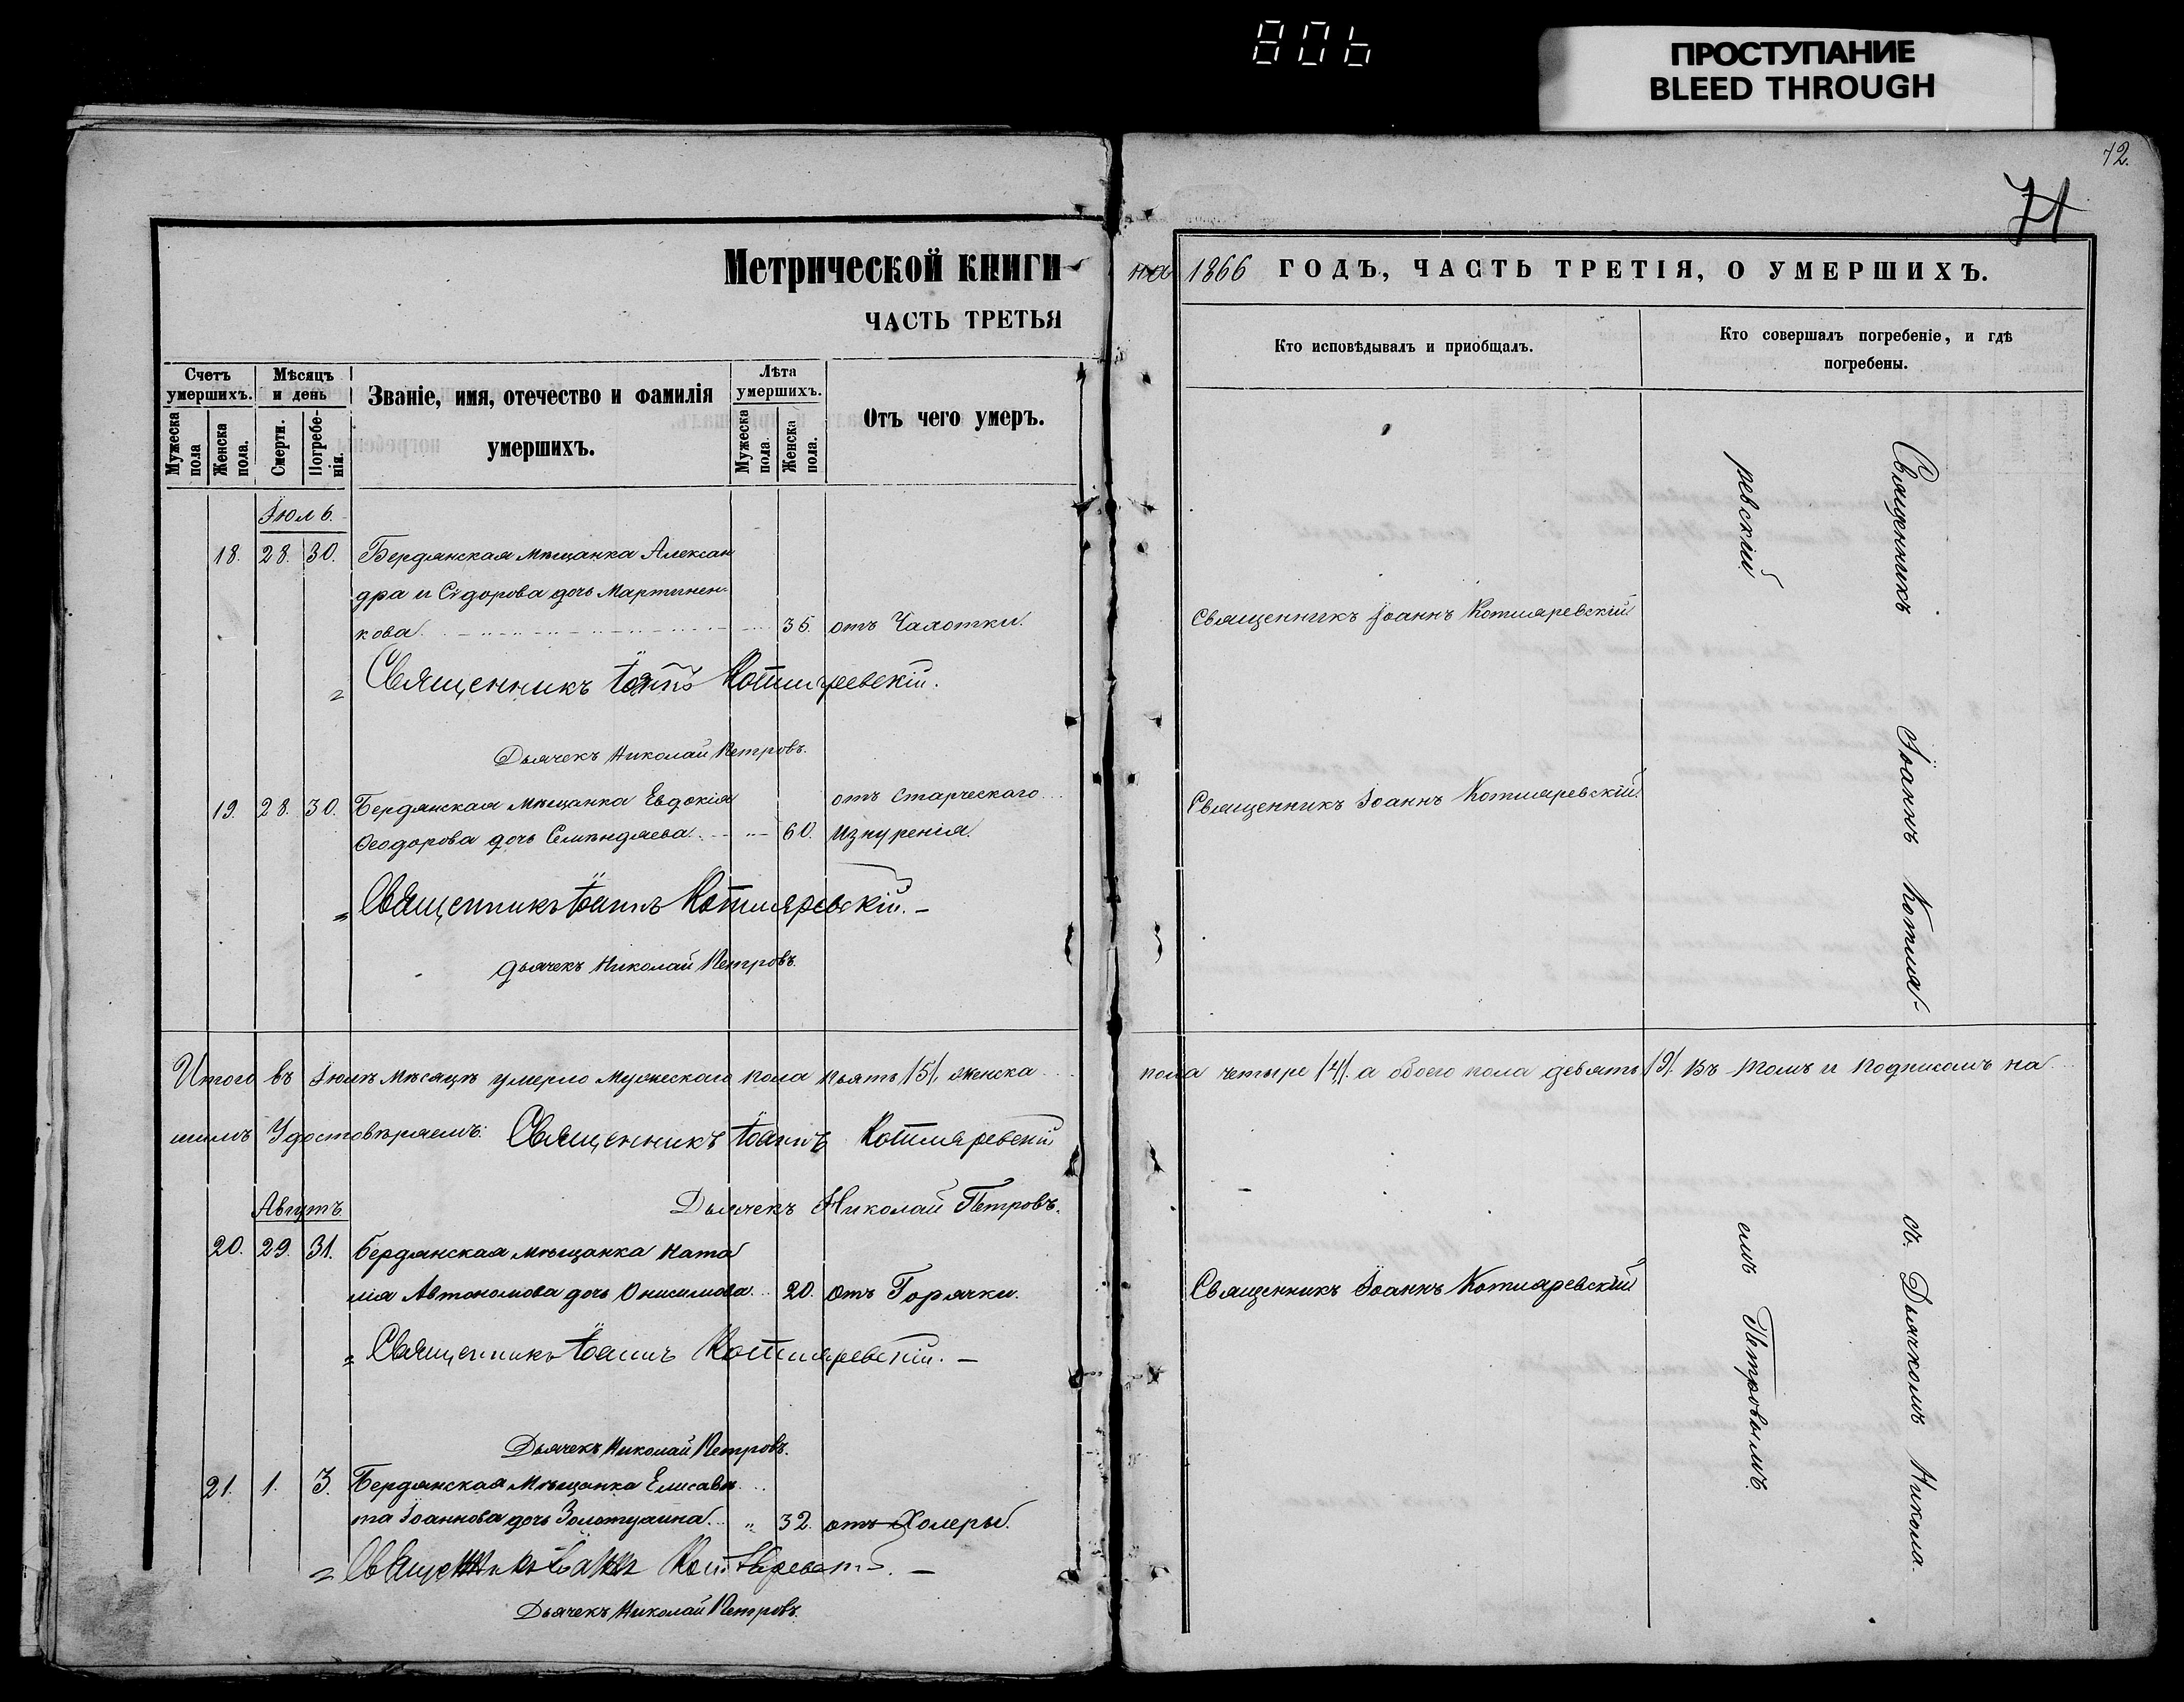 806
ПРОСТУПАНИЕ
BLEED THROUGH
72.
71
Метрической книги
ЧАСТЬ ТРЕТЬЯ
Счетъ умершихъ.
Мужеска пола
Женска пола.
Мѣсяцъ и день
Смерти.
Погребе-нія.
Званіе, имя, отечество и фамилія умершихъ.
Лѣта умершихъ.
Мужеска пола.
Женска пола.
Отъ чего умеръ.
Іюль.
18. 28. 30. Бердянская мѣщанка Алексан
дра и Сідорова дочь Мартинен-
кова. 35. отъ Чахотки.
Священникъ Іоаннъ Котляревскій.
Дьячекъ Николай Петровъ.
19. 28. 30. Бердянская мѣщанка Евдокія отъ Старческаго
Ѳеодорова дочь 60. изнуренія.
Священникъ Іоаннъ Котляревскій. –
дьячекъ Николай Петровъ.
Итого въ Іюлѣ мѣсяцѣ умерло мужескаго пола пять /5/, женска
шимъ Удостовѣряемъ: Священникъ Іоаннъ Котляревскій
Дьячекъ Николай Петровъ.
Августъ
20. 29. 31. Бердянская мѣщанка Ната
лія Автономова дочь Онисимова. 20. отъ Горячки.
Священникъ Іоаннъ Котляревскій. –
Дьячекъ Николай Петровъ.
21. 1. 3. Бердянская мѣщанка Елисаве
та Іоаннова дочь 32. отъ Холеры.
Священникъ Іоаннъ –
Дьячекъ Николай Петровъ.
на 1866 ГОДЪ, ЧАСТЬ ТРЕТІЯ, О УМЕРШИХЪ.
Кто исповѣдывалъ и приобщалъ.
Кто совершалъ погребеніе, и гдѣ
погребены.
Священникъ Іоаннъ Котляревскій
Священникъ Іоаннъ Котляревскій.
Священникъ Іоаннъ Котля-
ревскій
пола четыре /4/. а обоего пола девять /9/. Въ томъ и подписомъ на
Священникъ Іоаннъ Котляревскій
съ Дьячкомъ Никола-
емъ Петровымъ.